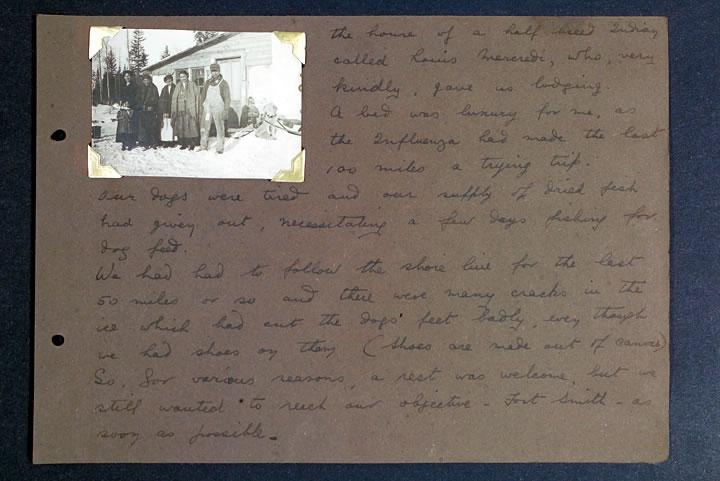 the house of a half breed Indian
called Louis Mercredi, who, very
kindly, gave us lodging.
A bed was luxury for me, as
the Influenza had made the last
100 miles a trying trip.
Our dogs were tired and our supply of dried fish
had given out, necessitating a few days fishing for
dog feed.
We had had to follow the shore line for the last
50 miles or so and there were many cracks in the
ice which had cut the dogs' feet badly, even though
we had shoes on them (Shoes are made out of canvas)
So, for various reasons, a rest was welcome, but we
still wanted to reach our objective - Fort Smith - as
soon as possible.